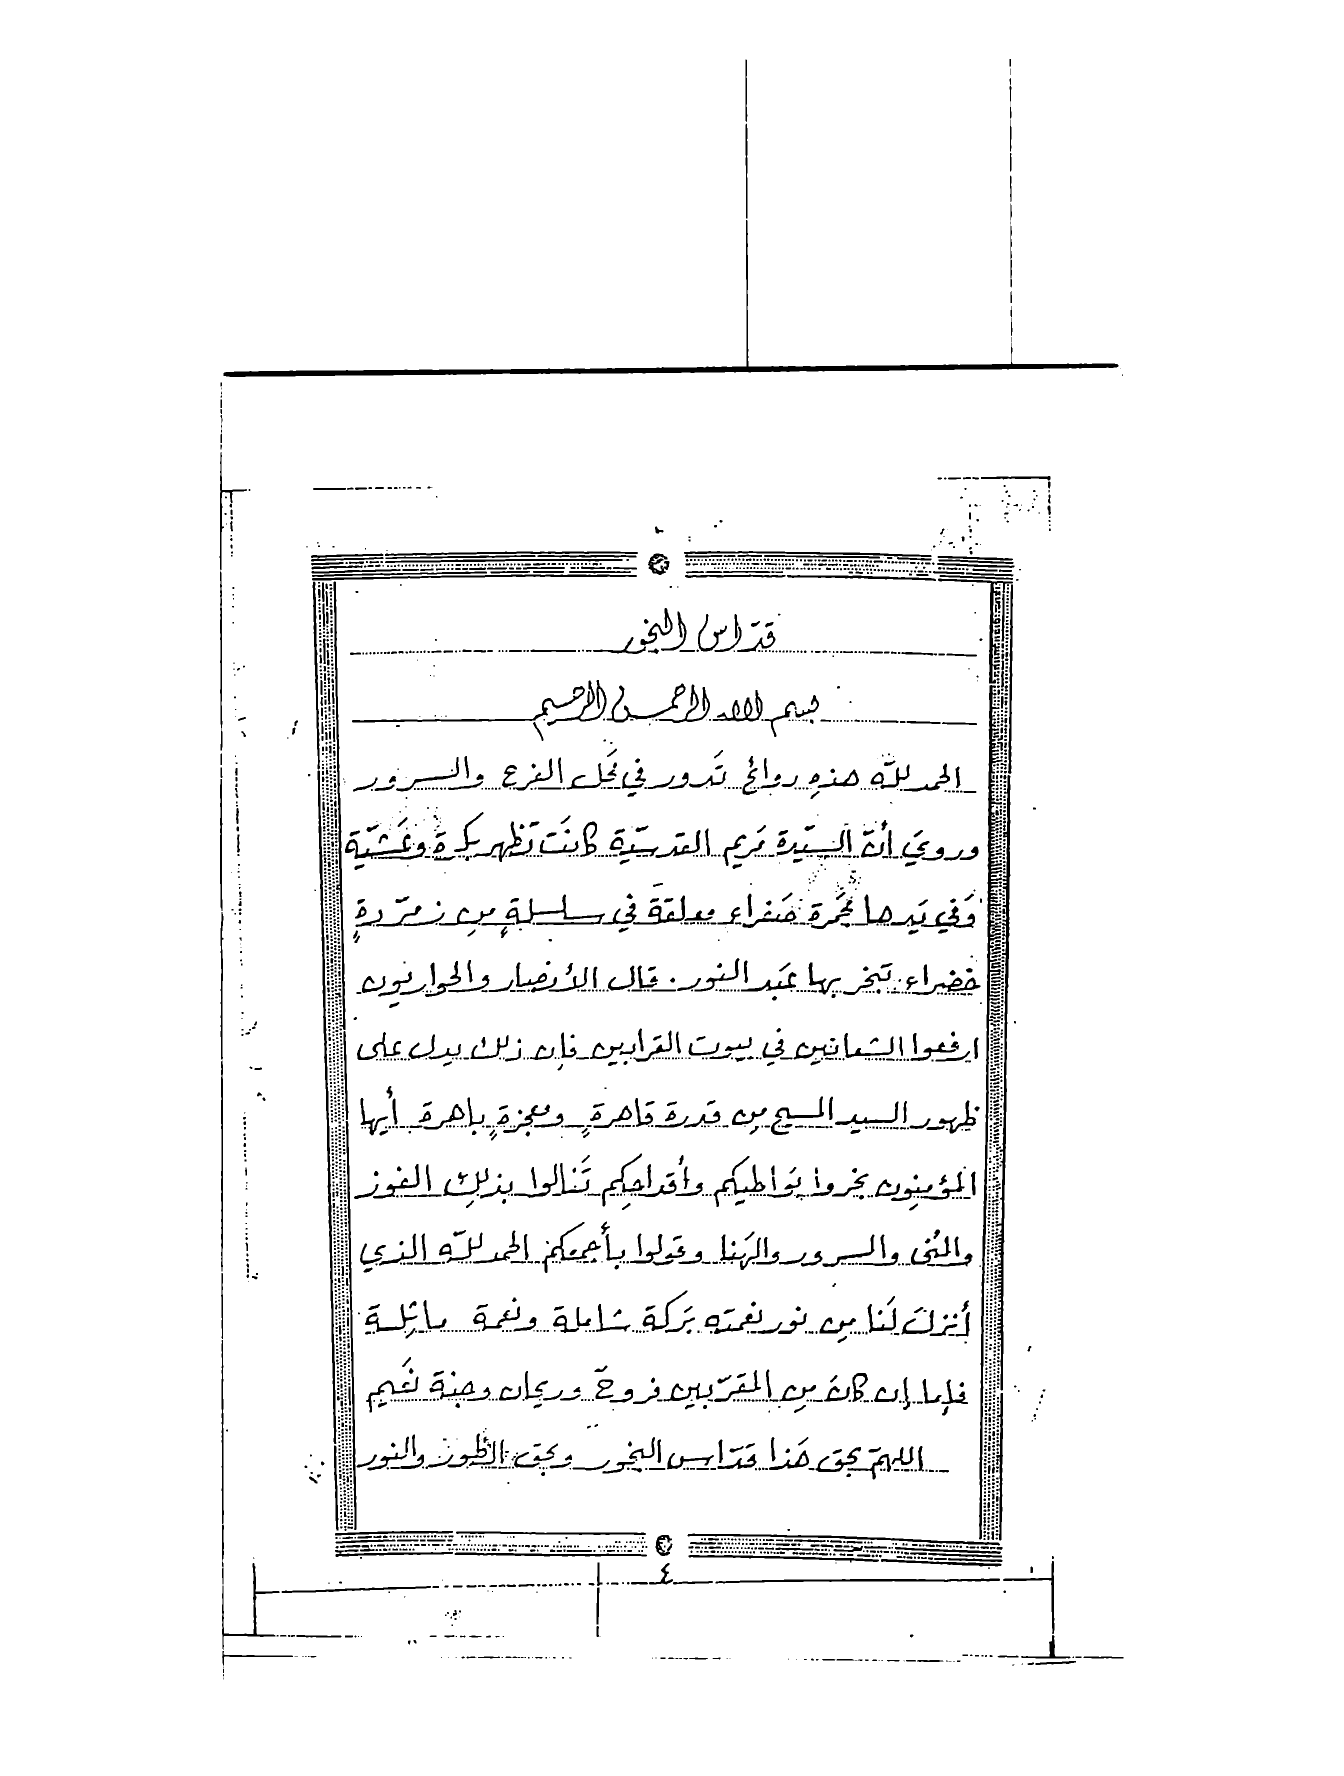 قدّاس البخور
بسم الله الرحمن الرحيم
الحمد للّه هذهِ روائح تَدور في مَحل الفرح والسرور
ورويَ أنّ السيّدة مَريم القدسيّة كانَت تَظهر بكرة وعَشيّة
وَفي يَدها مجَمرة صَفراء معلقة في سلسلةٍ مِن زمرّدةٍ
خضراء تبَخر بها عَبد النور. قال الأنصار والحواريون
ارفعوا الشعانين في بيوت القرابين فإن ذلك يدل على
ظهور السيد المسيح مِن قدرة قاهرةٍ ومعجزةٍ باهرة أيها
المؤمِنون بخروا بَواطيكم وأقداحِكم تَنالوا بذلِك الفوز
والمُنى والسرور والهَنا وقولوا بأجمعكم الحمد للّه الذي
أنزلَ لَنا مِن نور نعمته بَركة شاملة ونعمة ماثِلة
فإما إن كانَ مِن المقرّبين فروحٌ وريحان وجنة نَعيم
اللهمّ بحق هَذا قدّاس البخور وبحق الطور والنور
٤